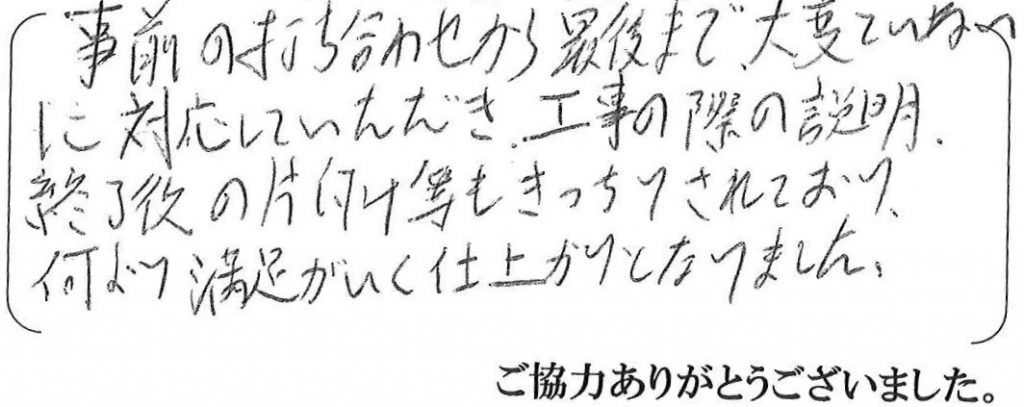 事前の打ち合わせから最後まで、大変ていねい
に対応していただき、工事の際の説明、
終了後の片付け等もきっちりされており、
何より満足がいく仕上がりとなりました。
ご協力ありがとうございました。